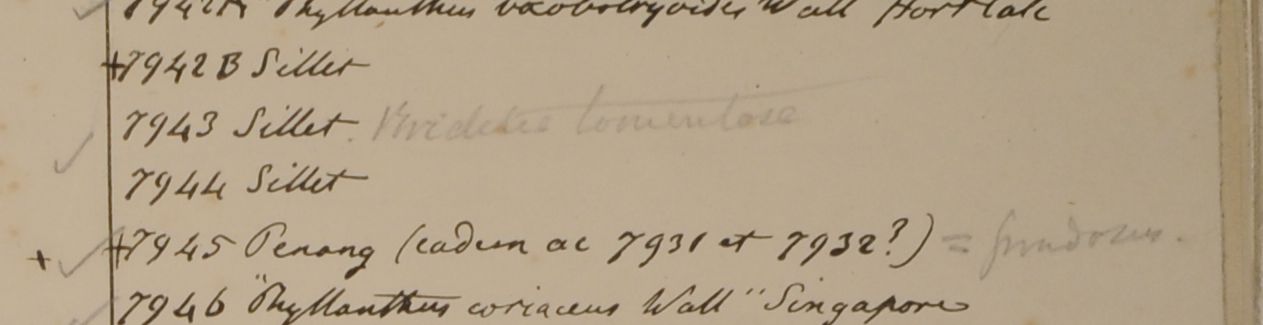 7942A "Phyllanthus Wall Hort Calc
+7942B Sillet
7943 Sillet. Briedelia tomentosa
7944 Sillet
+ +7945 Penang (eadem ac 7931 et 7932?) = frondosus.
7946 "Phyllanthus coriaceus Wall" Singapore